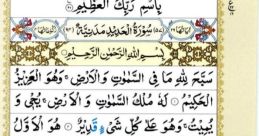 بِاسْمِ رَبِّكَ الْعَظِيْمِ
سُوْرَةُ الْحَدِيْدِ مَدَنِيَّةٌ
بِسْمِ اللهِ الرَّحْمٰنِ الرَّحِيْمِ
سَبَّحَ لِلّٰهِ مَا فِى السَّمٰوٰتِ وَالْاَرْضِ ۚ وَهُوَ الْعَزِيْزُ
الْحَكِيْمُ لَهٗ مُلْكُ السَّمٰوٰتِ وَالْاَرْضِ ۚ يُحْىٖ وَ
يُمِيْتُ ۚ وَهُوَ عَلٰى كُلِّ شَىْءٍ قَدِيْرٌ هُوَ الْاَوَّلُ